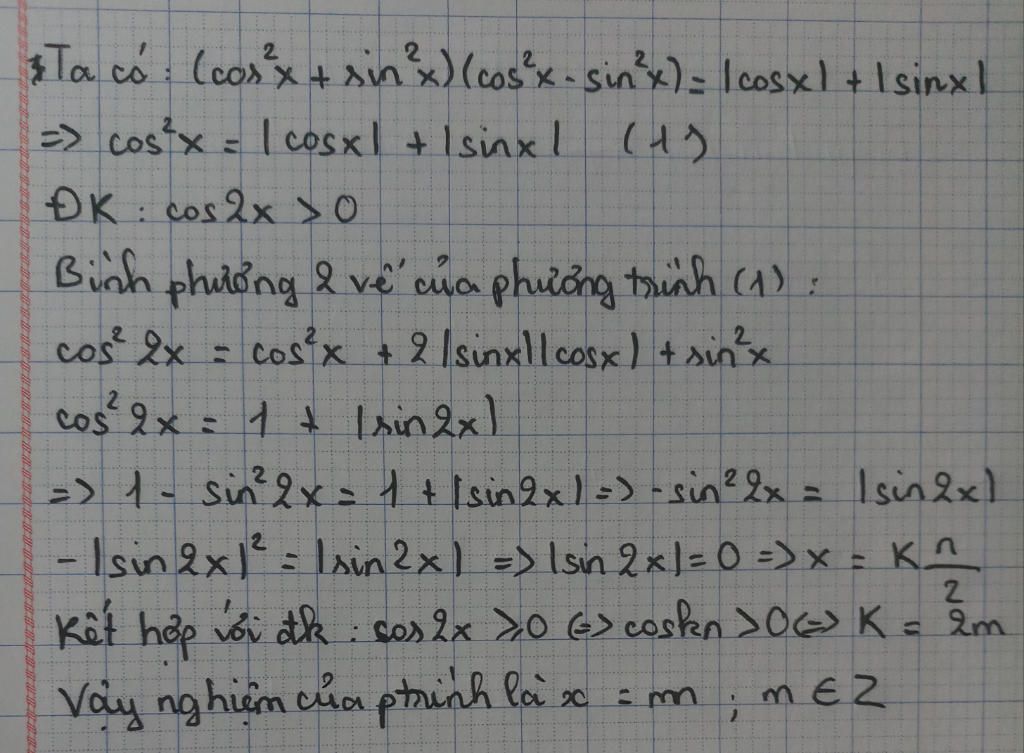 * Ta có : (cos²x + sin²x)(cos²x - sin²x) = |cosx| + |sinx|
=> cos²x = |cosx| + |sinx| (1)
ĐK : cos2x > 0
Bình phương 2 vế của phương trình (1) :
cos² 2x = cos²x + 2|sinx||cosx| + sin²x
cos² 2x = 1 + |sin2x|
=> 1 - sin²2x = 1 + |sin2x| => -sin²2x = |sin2x|
-|sin2x|² = |sin2x| => |sin2x| = 0 => x = K π/2
Kết hợp với đk : cos2x ≥ 0 <=> coskπ > 0 <=> K = 2m
Vậy nghiệm của ptrình là x = mπ ; m ∈ Z